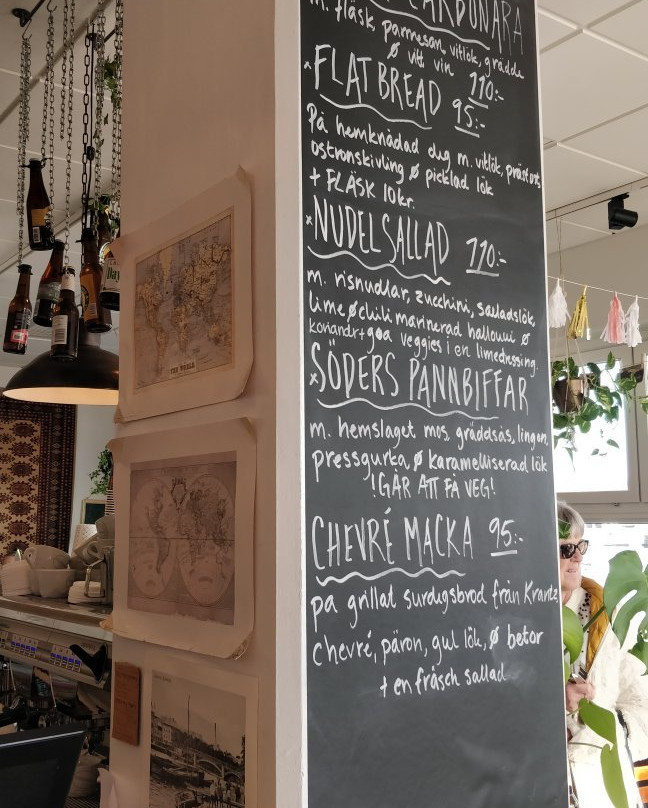 CARBONARA
m. fläsk, parmesan, vitlök, grädde
ø vitt vin 110:-
*FLATBREAD 95:-
På hemknådad deg m. vitlök, prästost,
ostronskivling ø picklad lök
+ FLÄSK 10kr.
*NUDELSALLAD 110:-
m. risnudlar, zucchini, salladslök,
lime ø chili marinerad halloumi ø
koriandr + goa veggies i en limedressing.
*SÖDERS PANNBIFFAR
m. hemslaget mos, gräddsås, lingon,
pressgurka, ø karamelliserad lök
!GÅR ATT FÅ VEG!
CHEVRÉ MACKA 95:-
på grillat surdegsbröd från Krantz,
chevré, päron, gul lök, ø betor
+ en fräsch sallad
THE WORLD